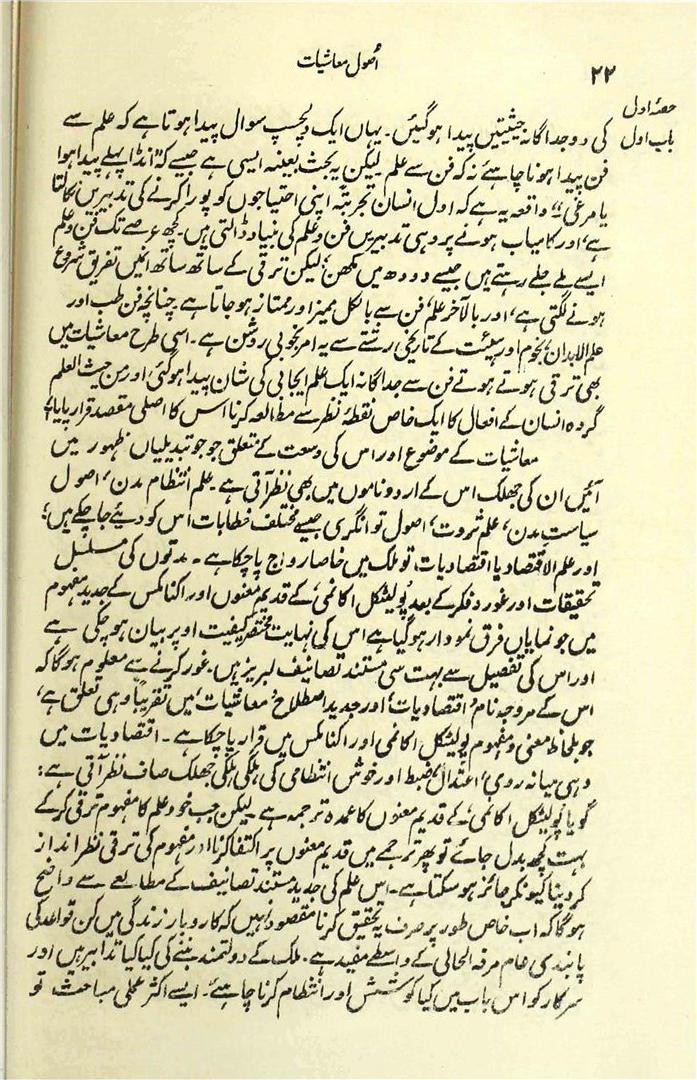 ۲۲
اُصول معاشیات
حصۂ اول
باب اول
کی دو جداگانہ حیثیتیں پیدا ہوگئیں۔ یہاں ایک دلچسپ سوال پیدا ہوتا ہے کہ علم سے
فن پیدا ہونا چاہئے نہ کہ فن سے علم لیکن یہ بحث بعینہ ایسی ہے جیسے کہ "انڈا پہلے پیدا ہوا
یا مرغی"۔ واقعہ یہ ہے کہ اول انسان تجربتہً اپنی احتیاجوں کو پورا کرنے کی تدبیریں نکالتا
ہے، اور کامیاب ہونے پر وہی تدبیریں فن و علم کی بنیاد ڈالتی ہیں۔ کچھ عرصے تک فن و علم
ایسے ملے جلے رہتے ہیں جیسے دودھ میں مکھن، لیکن ترقی کے ساتھ ساتھ انمیں تفریق شروع
ہونے لگتی ہے، اور بالآخر علم، فن سے بالکل ممیز اور ممتاز ہوجاتا ہے۔ چنانچہ فن طب اور
علم الابدان، نجوم اور ہیئت کے تاریخی رشتے سے یہ امر بخوبی روشن ہے۔ اسی طرح معاشیات میں
بھی ترقی ہوتے ہوتے فن سے جداگانہ ایک علم ایجابی کی شان پیدا ہوگئی، اور من حیث العلم
گروہ انسان کے افعال کا ایک خاص نقطۂ نظر سے مطالعہ کرنا اس کا اصلی مقصد قرار پایا؛
معاشیات کے موضوع اور اس کی وسعت کے متعلق جو جو تبدیلیاں ظہور میں
آئیں ان کی جھلک اس کے اردو ناموں میں بھی نظر آتی ہے۔ علم انتظام مدن، اصول
سیاست مدن، علم ثروت، اصول توانگری جیسے مختلف خطابات اس کو دیئے جاچکے ہیں؛
اور علم الاقتصاد یا اقتصادیات تو ملک میں خاصا رواج پاچکا ہے۔ مدتوں کی مسلسل
تحقیقات اور غور و فکر کے بعد، پولیٹکل اکانمی، کے قدیم معنوں اور، اکنامکس کے جدید مفہوم
میں جو نمایاں فرق نمودار ہوگیا ہے اس کی نہایت مختصر کیفیت اوپر بیان ہوچکی ہے
اور اس کی تفصیل سے بہت سی مستند تصانیف لبریز ہیں۔ غور کرنے سے معلوم ہوگا کہ
اس کے مروجہ نام، اقتصادیات، اور جدید اصطلاح، معاشیات، میں تقریباً وہی تعلق ہے،
جو بلحاظ معنی و مفہوم پولیٹکل اکانمی اور اکنامکس میں قرار پاچکا ہے۔ اقتصادیات میں
وہی میانہ روی، اعتدال، ضبط اور خوش انتظامی کی ہلکی ہلکی جھلک صاف نظر آتی ہے:
گویا، پولیٹکل اکانمی، کے قدیم معنوں کا عمدہ ترجمہ ہے۔ لیکن جب خود علم کا مفہوم ترقی کرکے
بہت کچھ بدل جائے تو پھر ترجمے میں قدیم معنوں پر اکتفا کرنا اور مفہوم کی ترقی نظر انداز
کردینا کیونکر جائز ہوسکتا ہے۔ اس علم کی جدید مستند تصانیف کے مطالعے سے واضح
ہوگا کہ اب خاص طور پر صرف یہ تحقیق کرنا مقصود نہیں کہ کاروبار زندگی میں کن قواعد کی
پابندی عام مرفہ الحالی کے واسطے مفید ہے۔ ملک کے دولتمند بننے کی کیا کیا تدابیر ہیں اور
سرکار کو اس باب میں کیا کوشش اور انتظام کرنا چاہئے۔ ایسے اکثر عملی مباحث تو